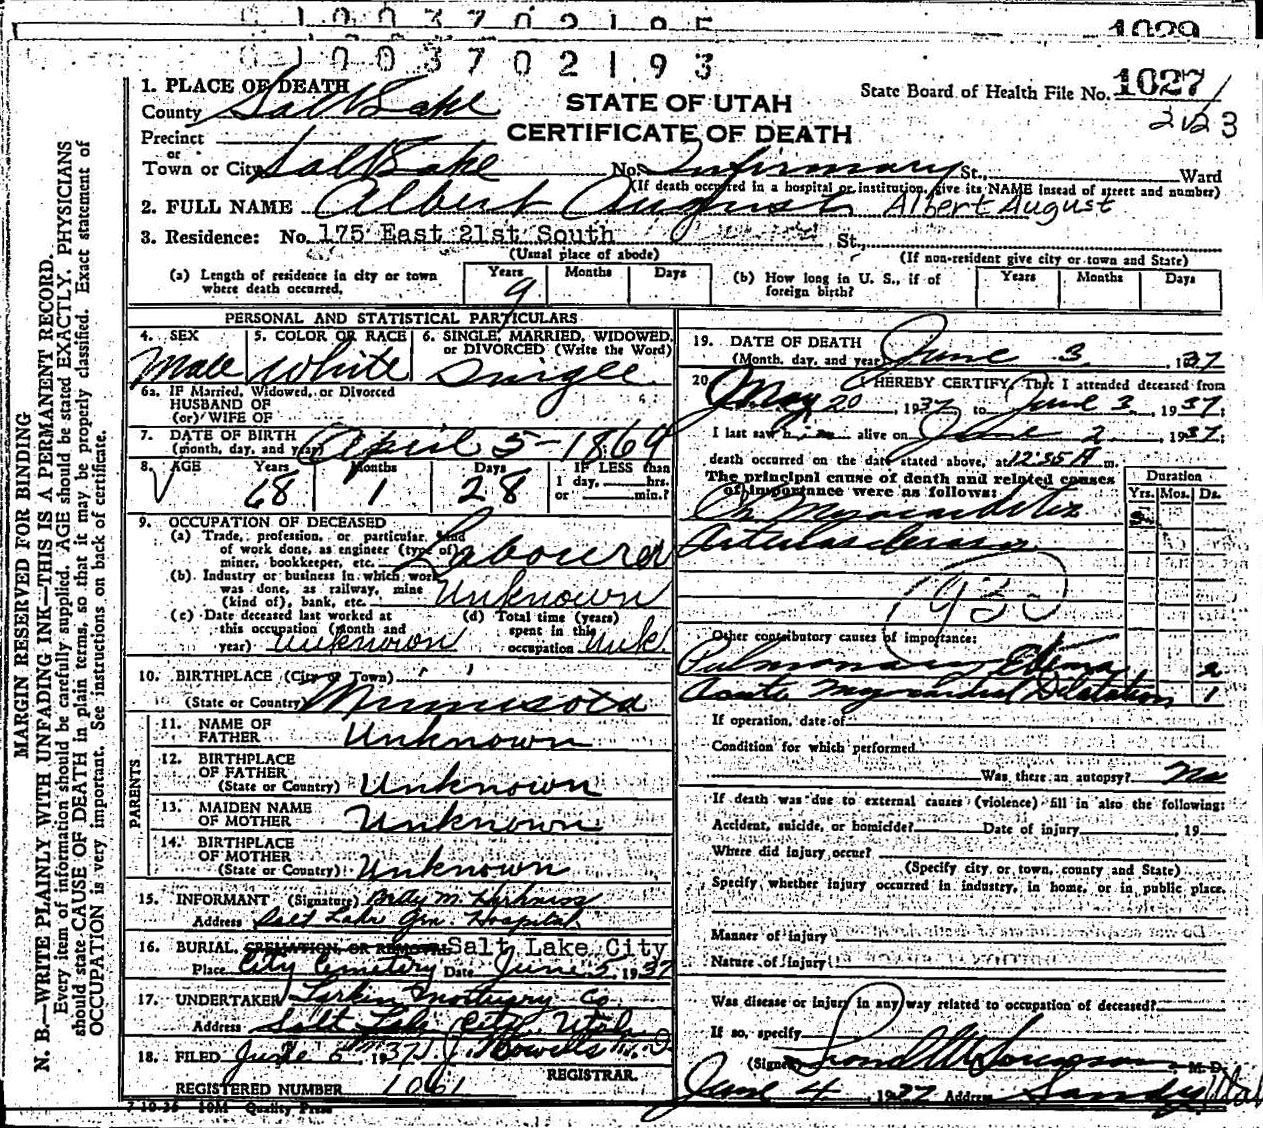 0 1 0 0 3 7 0 2 1 9 5
1029
0 1 0 0 3 7 0 2 1 9 3
1. PLACE OF DEATH
County Salt Lake
Precinct
or
Town or City Salt Lake
STATE OF UTAH
CERTIFICATE OF DEATH
State Board of Health File No. 1027
2123
No. Infirmary St., Ward
(If death occurred in a hospital or institution, give its NAME instead of street and number)
2. FULL NAME Albert August Albert August
3. Residence: No. 175 East 21st South St.,
(Usual place of abode) (If non-resident give city or town and State)
(a) Length of residence in city or town where death occurred. Years 9 Months Days
(b) How long in U. S., if of foreign birth? Years Months Days
PERSONAL AND STATISTICAL PARTICULARS
4. SEX Male
5. COLOR OR RACE White
6. SINGLE, MARRIED, WIDOWED, or DIVORCED (Write the Word) Single
6a. IF Married, Widowed, or Divorced
HUSBAND OF
(or) WIFE OF
7. DATE OF BIRTH
(month, day, and year) April 5-1869
8. AGE Years 68 Months 1 Days 28 IF LESS than
1 day, hrs.
or min.?
9. OCCUPATION OF DECEASED
(a) Trade, profession, or particular kind
of work done, as engineer (type of)
miner, bookkeeper, etc. Labourer
(b) Industry or business in which work
was done, as railway, mine
(kind of), bank, etc. Unknown
(c) Date deceased last worked at
this occupation (month and
year) Unknown
(d) Total time (years)
spent in this
occupation Unk.
10. BIRTHPLACE (City or Town)
(State or Country) Minnesota
PARENTS
11. NAME OF
FATHER Unknown
12. BIRTHPLACE
OF FATHER
(State or Country) Unknown
13. MAIDEN NAME
OF MOTHER Unknown
14. BIRTHPLACE
OF MOTHER
(State or Country) Unknown
15. INFORMANT (Signature) M.
Address Salt Lake Gen. Hospital
16. BURIAL, CREMATION, OR REMOVAL Salt Lake City
Place City Cemetery Date June 5, 1937
17. UNDERTAKER Larkin Mortuary Co
Address Salt Lake City Utah
18. FILED June 5 1937 Bowells M.D.
REGISTRAR.
REGISTERED NUMBER 1061
7-10-35 10M Quality Press
19. DATE OF DEATH
(Month, day, and year) June 3, 1937
20. I HEREBY CERTIFY That I attended deceased from
May 20, 1937 to June 3, 1937;
I last saw him alive on June 2, 1937;
death occurred on the date stated above, at 12:35 A m.
The principal cause of death and related causes
of importance were as follows:
Duration
Yrs. Mos. Ds.
Ch Myocarditis
Arteriosclerosis
Other contributory causes of importance:
Pulmonary Edema 2
Acute Myocardial Dilatation 1
If operation, date of
Condition for which performed
Was there an autopsy? No
If death was due to external causes (violence) fill in also the following:
Accident, suicide, or homicide? Date of injury, 19
Where did injury occur?
(Specify city or town, county and State)
Specify whether injury occurred in industry, in home, or in public place.
Manner of injury
Nature of injury
Was disease or injury in any way related to occupation of deceased?
If so, specify
(Signed) Sorenson M. D.
June 4, 1937 Address Sandy Utah
MARGIN RESERVED FOR BINDING
N. B.—WRITE PLAINLY WITH UNFADING INK—THIS IS A PERMANENT RECORD.
Every item of information should be carefully supplied. AGE should be stated EXACTLY. PHYSICIANS
should state CAUSE OF DEATH in plain terms, so that it may be properly classified. Exact statement of
OCCUPATION is very important. See instructions on back of certificate.